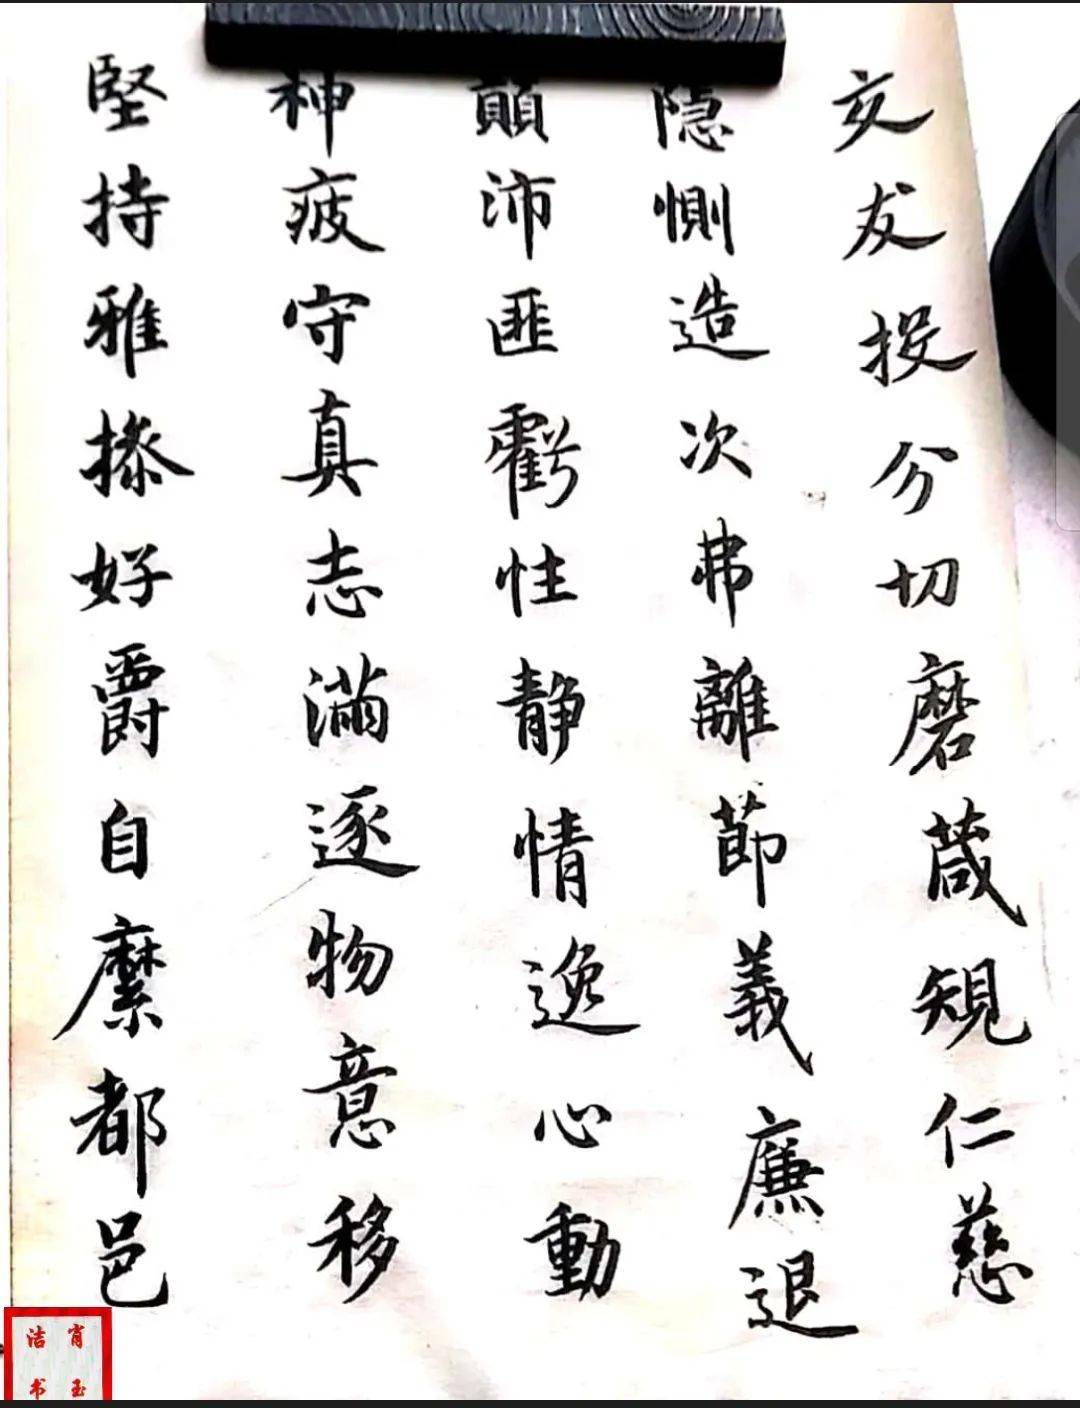 交友投分切磨箴規仁慈
隱惻造次弗離節義廉退
顛沛匪虧性静情逸心動
神疲守真志滿逐物意移
堅持雅操好爵自縻都邑
肖玉
洁书